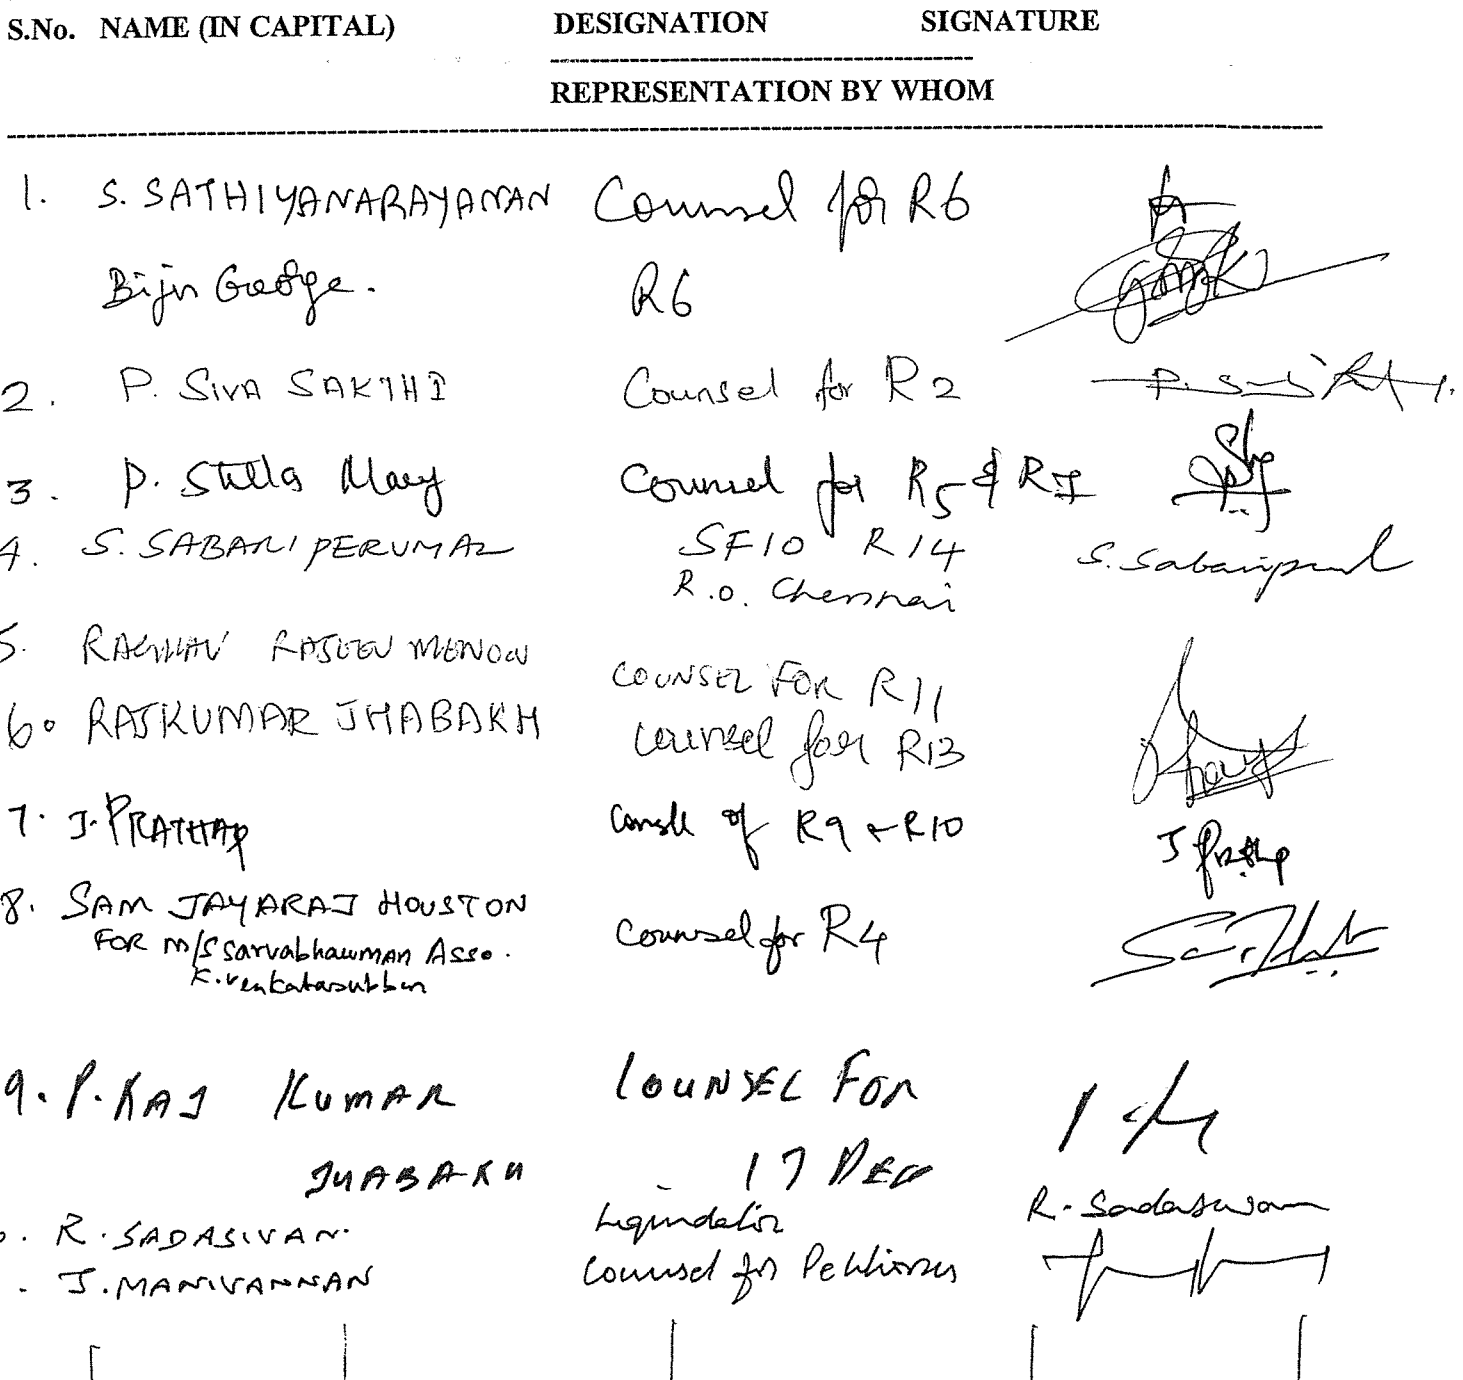 S.No. NAME (IN CAPITAL) DESIGNATION SIGNATURE
REPRESENTATION BY WHOM
1. S. SATHIYANARAYANAN Counsel for R6
Biju George. R6
2. P. SIVA SAKTHI Counsel for R2
3. P. Stella Mary Counsel for R5 & R7
4. S. SABARIPERUMAL SFIO R14 S. Sabariperumal
R.O. Chennai
5. RAGHAV RAJEEV MENON COUNSEL FOR R11
6. RAJKUMAR JHABAKH Counsel for R13
7. J. PRATHAP R9 & R10 J Prathap
8. SAM JAYARAJ HOUSTON Counsel for R4
FOR M/S Sarvabhauman Asso.
K. Venkatasubban
9. P. RAJ KUMAR COUNSEL FOR
JHABAKH 17
R. SADASIVAN. Liquidator R. Sadasivan
J. MANIVANNAN Counsel for Petitioner